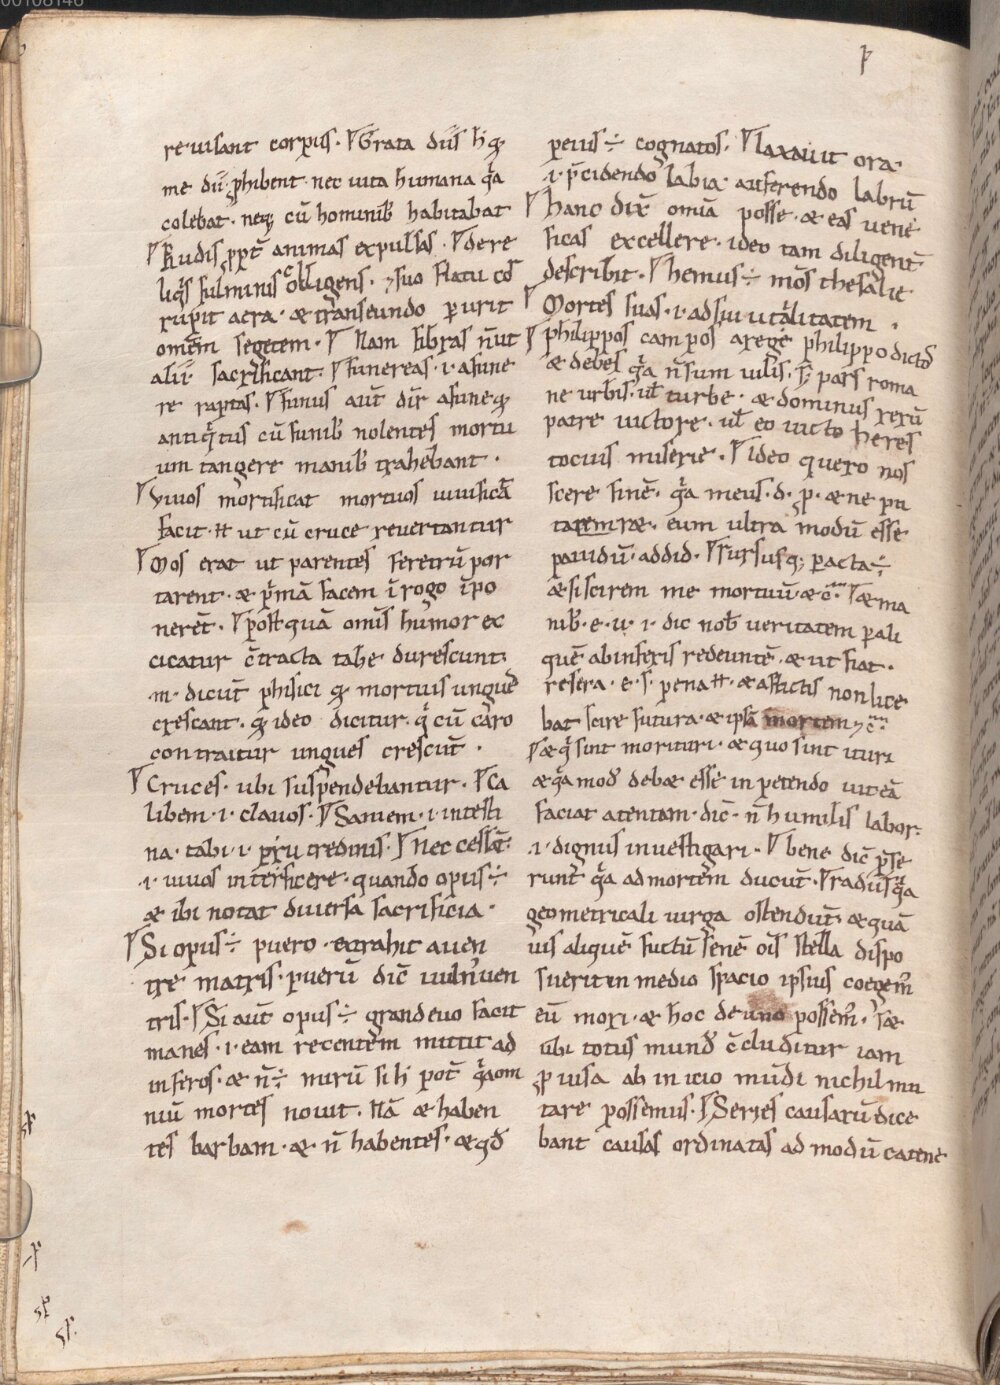 00108146
ꝑ
reuisant corpus. Grata diis hͥ qͥ
me dii ꝓhibent. nec uita humana qͣa
colebat. neqꝫ cū hominibꝰ habitabat
Rudis ꝓpt̄ animas expulsas. dere
liqͦs fulminis colligens. ⁊ suo flatu co͞s
rupit aera. ⁊ transeundo ꝑurit
omēm segetem. Nam fibras n̄ ut
alii sacrificant. Funereas .i. a fune
re raptas. Funus aūt dir̄ a fune qͥ
antiqͥtus cū funibꝰ nolentes mortu
um tangere manibꝰ trahebant.
Viuos mortificat mortuos uiuificā
facit. ut cū cruce reuertantur
Mos erat ut parentes feretrū por
tarent. ⁊ pͥmā facem ī rogo īpo
nerēt. postquā omīs humor ex
cicatur c̄tracta tabe durescunt
.m. dicūt phisici qͥ mortuis ungueͤs
crescant. qͥ ideo dicitur. qͥ cū caro
contraitur ungues crescūt.
Cruces. ubi suspendebantur. Ca
libem .i. clauos. Saniem .i. intesti
na. tabi .i. putredinis. Nec cessāt.
.i. uiuos interficere. quando opus÷
⁊ ibi notat diuersa sacrificia.
Si opus÷ puero. extrahit a uen
tre matris. puerū dic̄ uuln̄ uen
tris. Si aūt opus÷ grandeuo facit
manes .i. eam recentem mittit ad
inferos. ⁊ n̄÷ mirū si hͥ pot̄ qͣa om
niū mortes nouit. Nā ⁊ haben
tes barbam. ⁊ n̄ habentes. ⁊ qd̄
peius÷ cognatos. Laxauit ora.
.i. p̄cidendo labia. auferendo labrū
hanc dix̄ omīa posse. ⁊ eas uene
ficas excellere. ideo tam diligent̄
describit. hemus÷ mōs thesalie
Mortes suas .i. ad sui utilitatem.
philippos campos a rege philippo dictos
⁊ debes qͣa n̄ sum uilis. pars roma
ne urbis. ul̄ turbe. ⁊ dominus rerū
patre uictore. ul̄ eo uicto heres
tocius miserie. Ideo quero nos
scere finē. qͣa meus .d. p̄. ⁊ ne pu
tarem rae. eum ultra modū esse
pauidū addid. Sursusqꝫ ꝑacta÷
⁊ si scirem me mortuū ⁊ c̄. ⁊ ma
nibꝰ .e. u. i. dic nob̄ ueritatem ꝑ ali
quē ab inferis redeuntē. ⁊ ut fiat.
resera .e. s. pena. ⁊ afflictis non lice
bat scire futura. ⁊ ipsā mortem ⁊ c̄.
⁊ qͥ sint morituri. ⁊ quo sint ituri
⁊ qͣ mod̄ debae esse in petendo uit eā
faciat atentam. dic̄. n̄ humilis labor.
.i. dignus inuestigari. bene dic̄ p̄se
runt qͣa ad mortem ducūt. radiis qͣa
geometricali uirga ostendūt. ⁊ quā
uis aliquē futurū senē oīs stella dispo
suerit in medio spacio ipsius coegem̄
eū mori. ⁊ hoc de uno possem̄. ⁊
ubi totus mund̄ c̄cluditur iam
ꝓ uisa ab inicio mūdi nichil mu
tare possemus. Series causarū dice
bant causas ordinatas ad modū catene